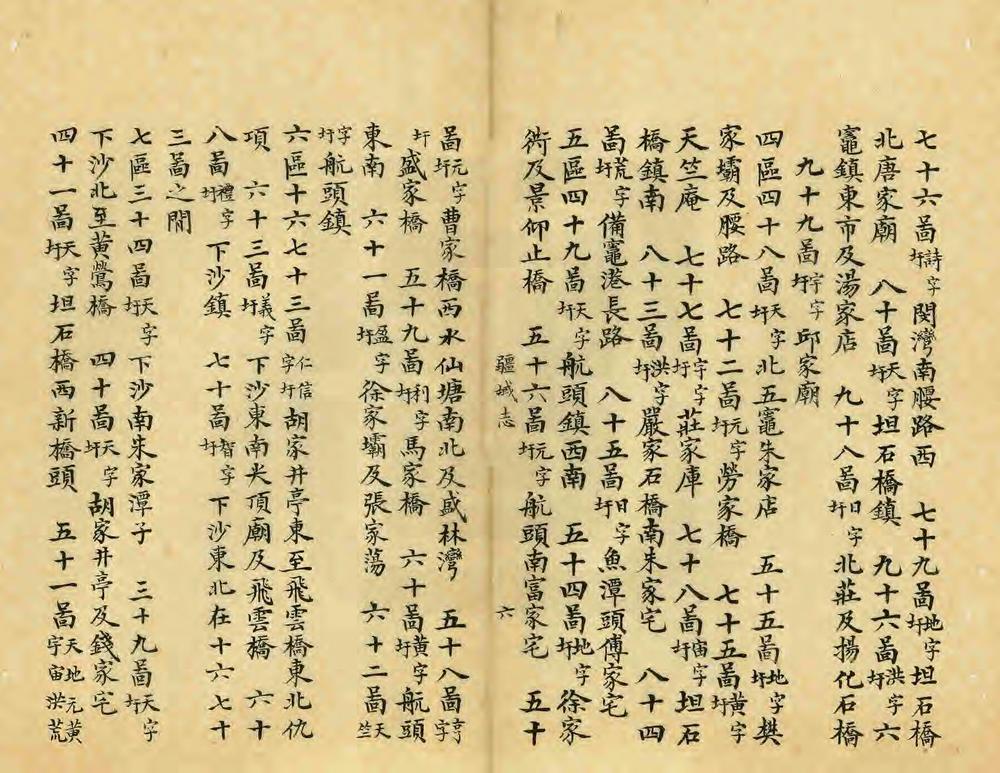 七十六啚詩字圩閔灣南腰路西　七十九啚地字圩坦石橋
北唐家廟　八十啚天字圩坦石橋鎮　九十六啚洪字圩六
竈鎮東市及湯家店　九十八啚日字圩北莊及揚化石橋
九十九啚宇字圩邱家廟
四區四十八啚天字圩北五竈朱家店　五十五啚地字圩樊
家壩及腰路　七十二啚元字圩勞家橋　七十五啚黃字圩
天竺庵　七十七啚宇字圩莊家庫　七十八啚宙字圩坦石
橋鎮南　八十三啚洪字圩嚴家石橋南朱家宅　八十四
啚荒字圩備竈港長路　八十五啚日字圩魚潭頭傅家宅
五區四十九啚天字圩航頭鎮西南　五十四啚地字圩徐家
衖及景仰止橋　五十六啚元字圩航頭南富家宅　五十
疆域志　六
啚元字圩曹家橋西水仙塘南北及盛林灣　五十八啚亨字
圩盛家橋　五十九啚利字圩馬家橋　六十啚黃字圩航頭
東南　六十一啚盈字圩徐家壩及張家蕩　六十二啚天竺
字圩航頭鎮
六區十六七十三啚仁信字圩胡家井亭東至飛雲橋東北仇
項　六十三啚義字圩下沙東南尖頂廟及飛雲橋　六十
八啚禮字圩下沙鎮　七十啚智字圩下沙東北在十六七十
三啚之閒
七區三十四啚天字圩下沙南朱家潭子　三十九啚天字圩
下沙北至黃鶯橋　四十啚天字圩胡家井亭及錢家宅
四十一啚天字圩坦石橋西新橋頭　五十一啚天地元黃宇宙洪荒